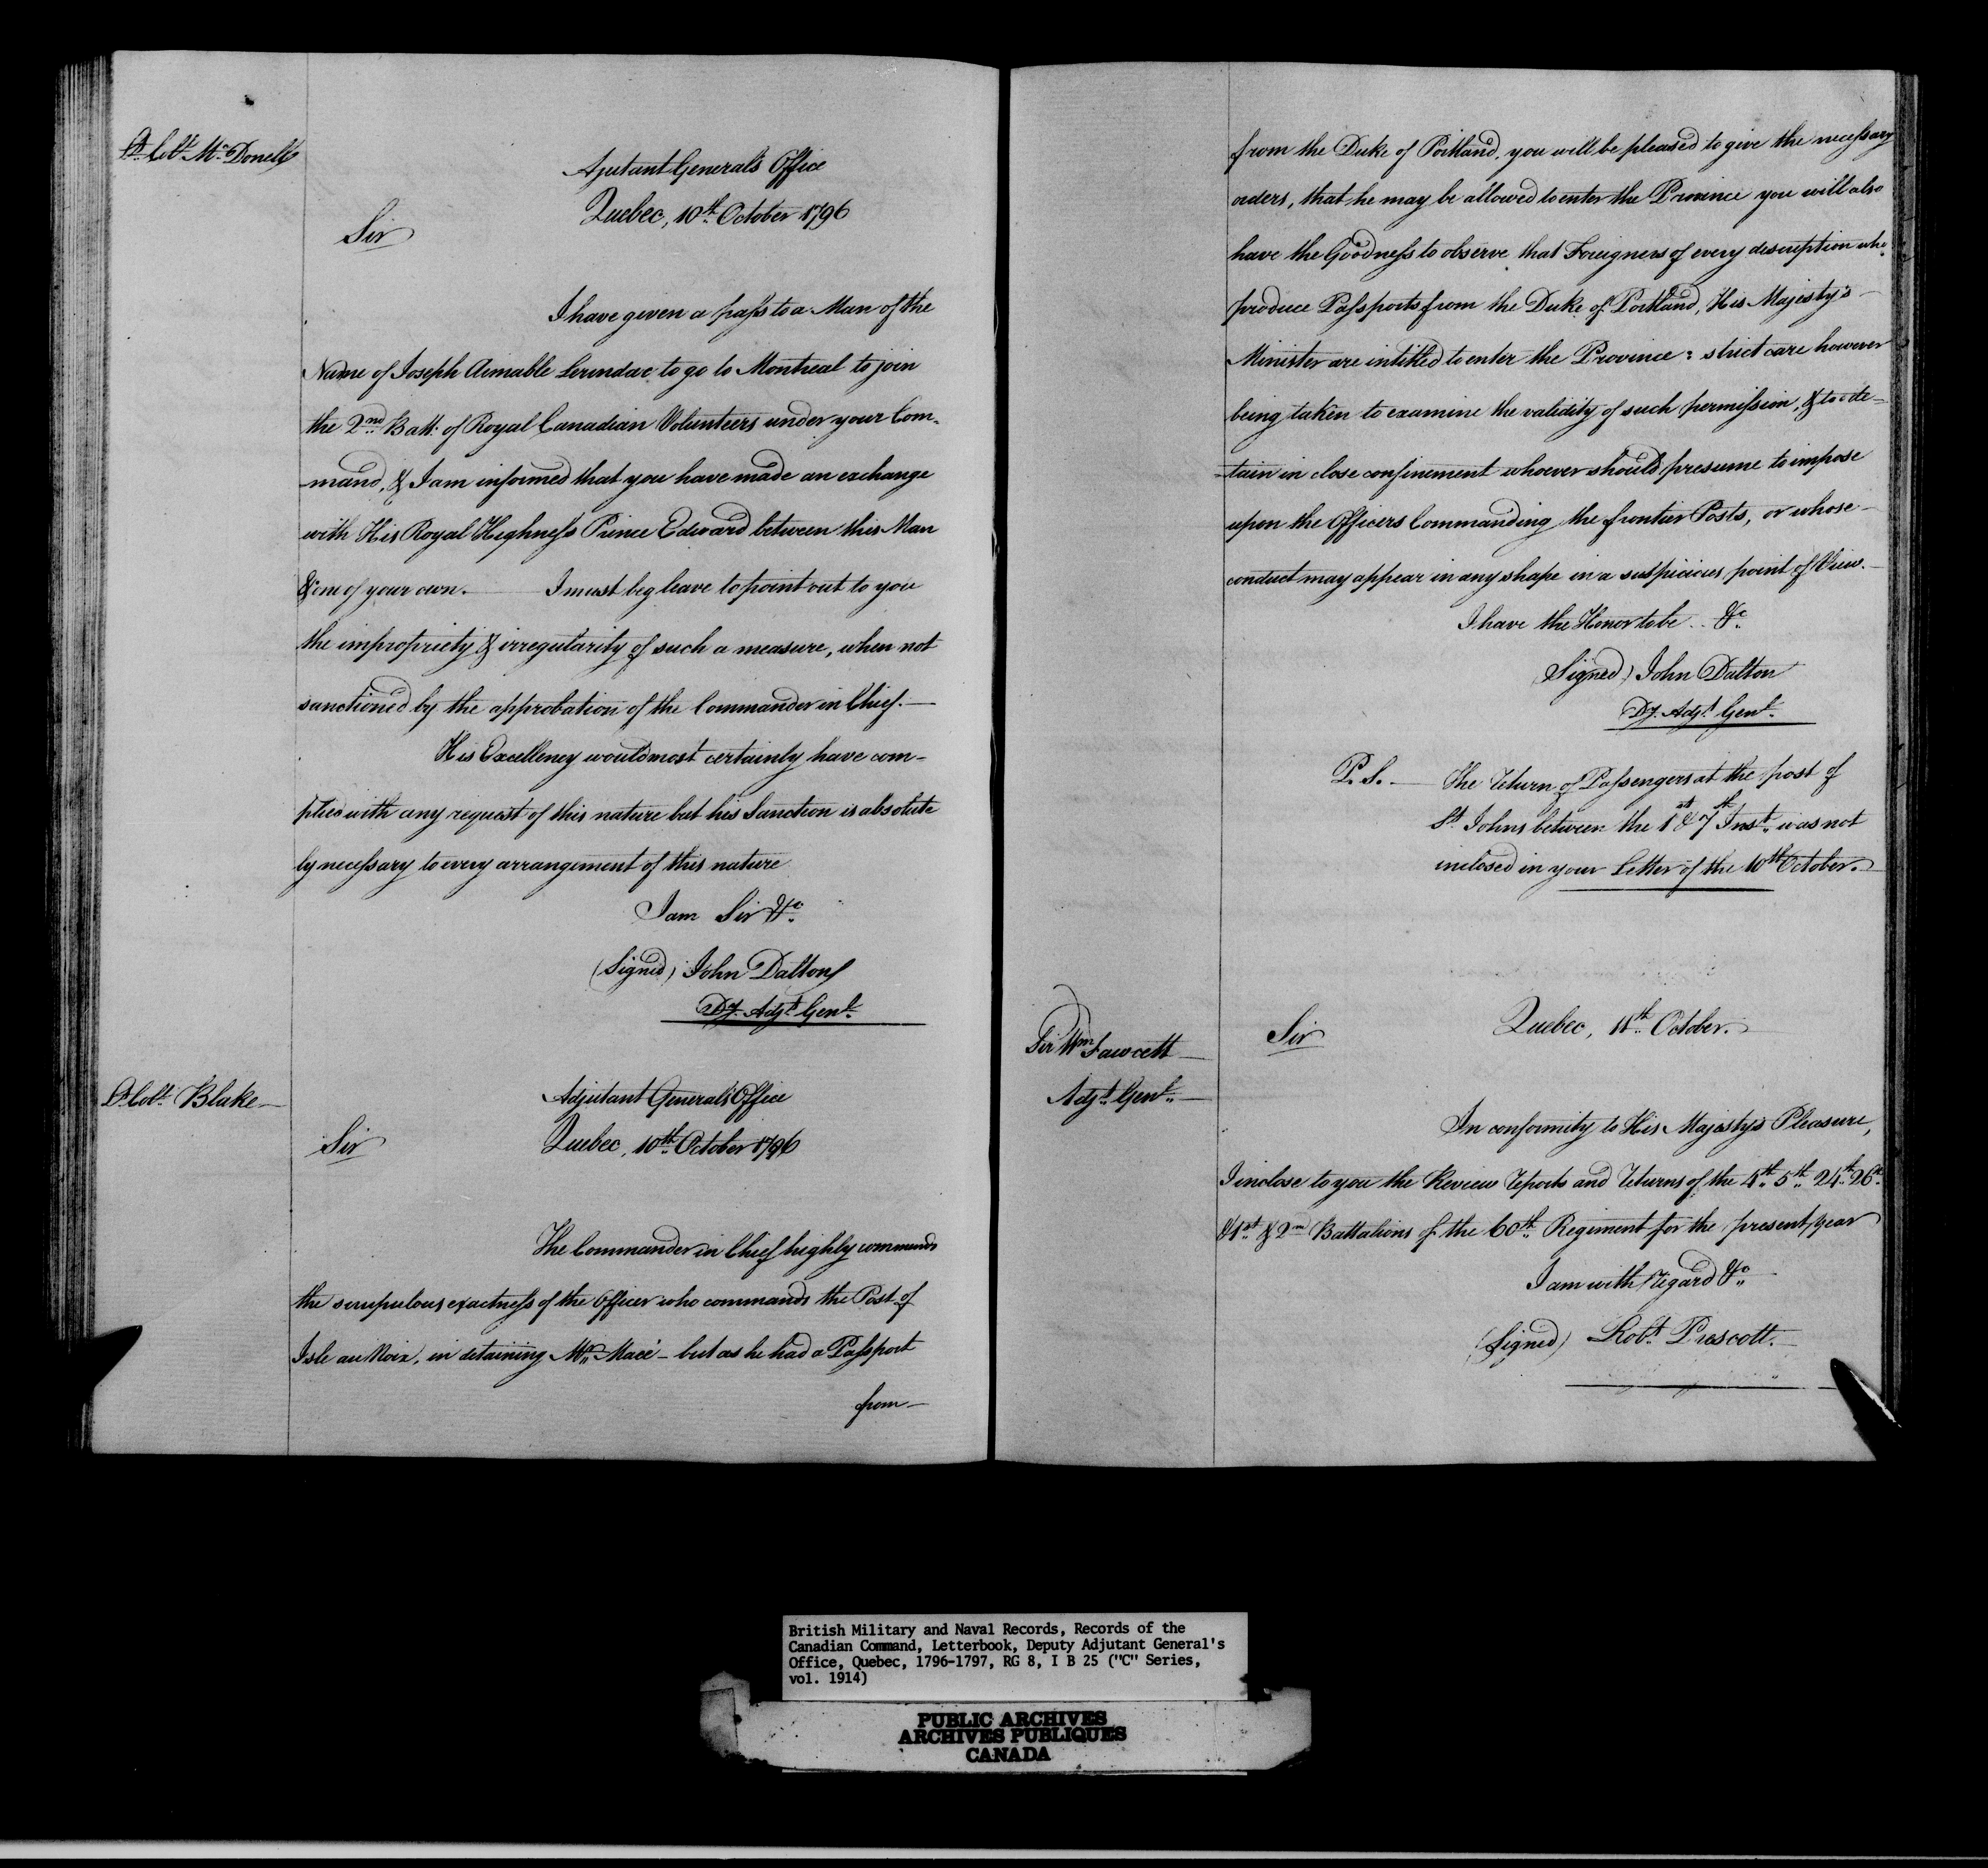 Lt. Colt. McDonell
Ajutant General's Office
Quebec, 10th October 1796
Sir
I have given a pass to a Man of the
Name of Joseph Aimable to go to Montreal to join
the 2nd Batt: of Royal Canadian Volunteers under your Com-
mand, & I am informed that you have made an exchange
with His Royal Highness Prince Edward between this Man
& one of your own. — I must beg leave to point out to you
the impropriety & irregularity of such a measure, when not
sanctioned by the approbation of the Commander in Chief. —
His Excellency would most certainly have com-
plied with any request of this nature but his Sanction is absolute
ly necessary to every arrangement of this nature
I am Sir &c.
(Signed) John Dalton
Dy. Adjt. Genl.
Lt. Colt. Blake —
Adjutant General's Office
Quebec, 10th October 1796
Sir
The Commander in Chief highly commends
the scrupulous exactness of the Officer who commands the Post of
Isle au Noix, in detaining Mr. Macé — but as he had a Passport
from —
from the Duke of Portland, you will be pleased to give the necessary
orders, that he may be allowed to enter the Province you will also
have the Goodness to observe that Foreigners of every description who
produce Passports from the Duke of Portland, His Majesty's —
Minister are intitled to enter the Province: strict care however
being taken to examine the validity of such permission, & to de-
-tain in close confinement whoever should presume to impose
upon the Officers Commanding the frontier Posts, or whose —
conduct may appear in any shape in a suspicious point of View. —
I have the Honor to be .. &c.
(Signed) John Dalton
Dy. Adjt. Genl.
P.S. — The Return of Passengers at the post of
St. Johns between the 1st & 7th Inst. was not
inclosed in your Letter of the 10th October. —
Sir Wm Fawcett —
Adjt. Genl. —
Quebec, 11th October.
Sir
In conformity to His Majesty's Pleasure,
I inclose to you the Review Reports and Returns of the 4th. 5th. 24th. 26th.
& 1st & 2nd Battalions of the 60th Regiment for the present year
I am with Regard &c.
(Signed) Robt. Prescott. —
British Military and Naval Records, Records of the
Canadian Command, Letterbook, Deputy Adjutant General's
Office, Quebec, 1796-1797, RG 8, I B 25 ("C" Series,
vol. 1914)
PUBLIC ARCHIVES
ARCHIVES PUBLIQUES
CANADA